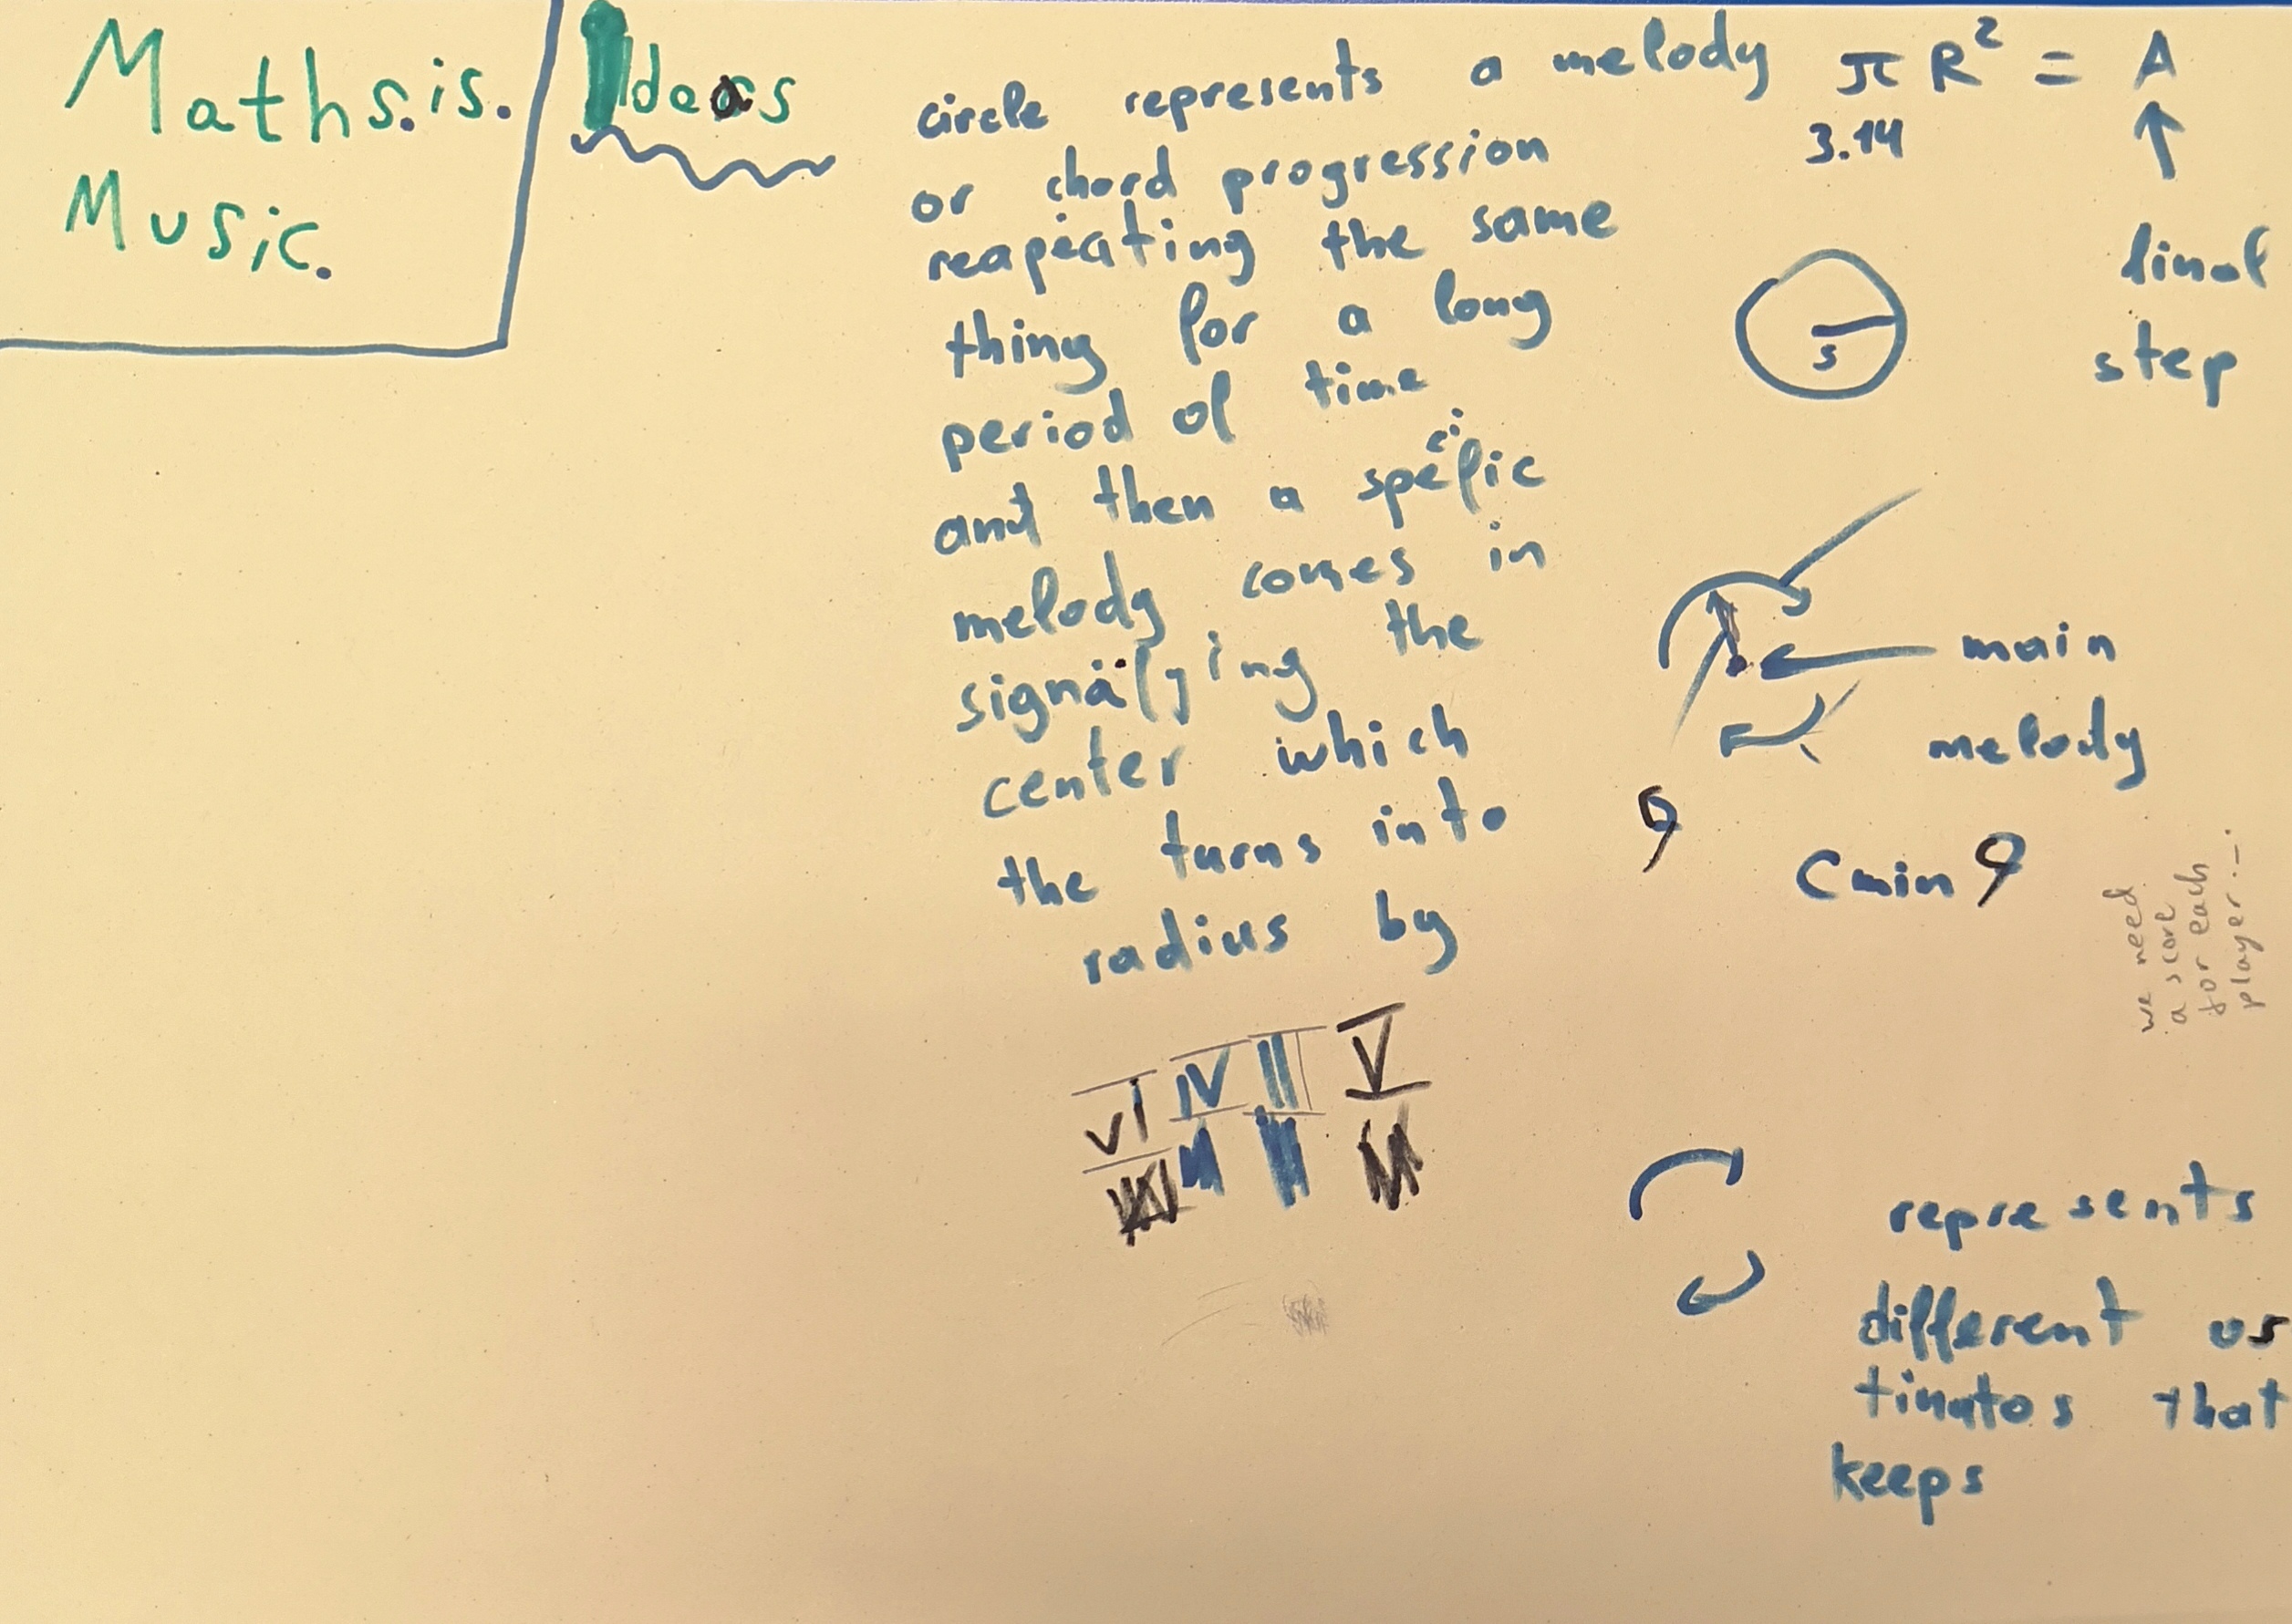 Maths.is.
Music.
Ideas
circle represents a melody
or chord progression
reapeating the same
thing for a long
period of time
and then a specific
melody comes in
signalying the
center which
the turns into
radius by
VI IV II V
π R² = A
3.14
final
step
5
main
melody
9
Cmin 9
we need
a score
for each
player...
represents
different os
tinatos that
keeps